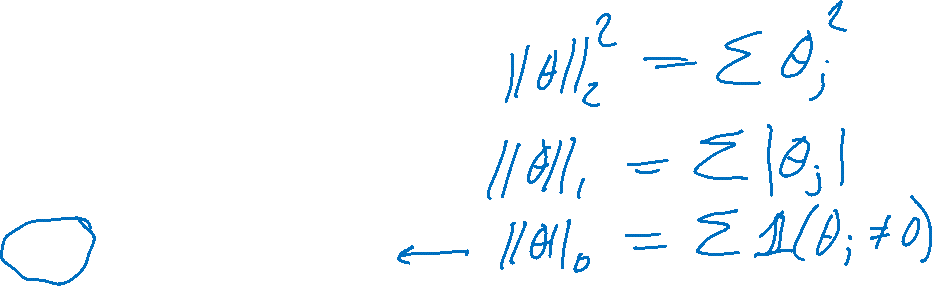 ‖θ‖₂² = Σ θⱼ²
‖θ‖₁ = Σ |θⱼ|
← ‖θ‖₀ = Σ 𝟙(θⱼ ≠ 0)